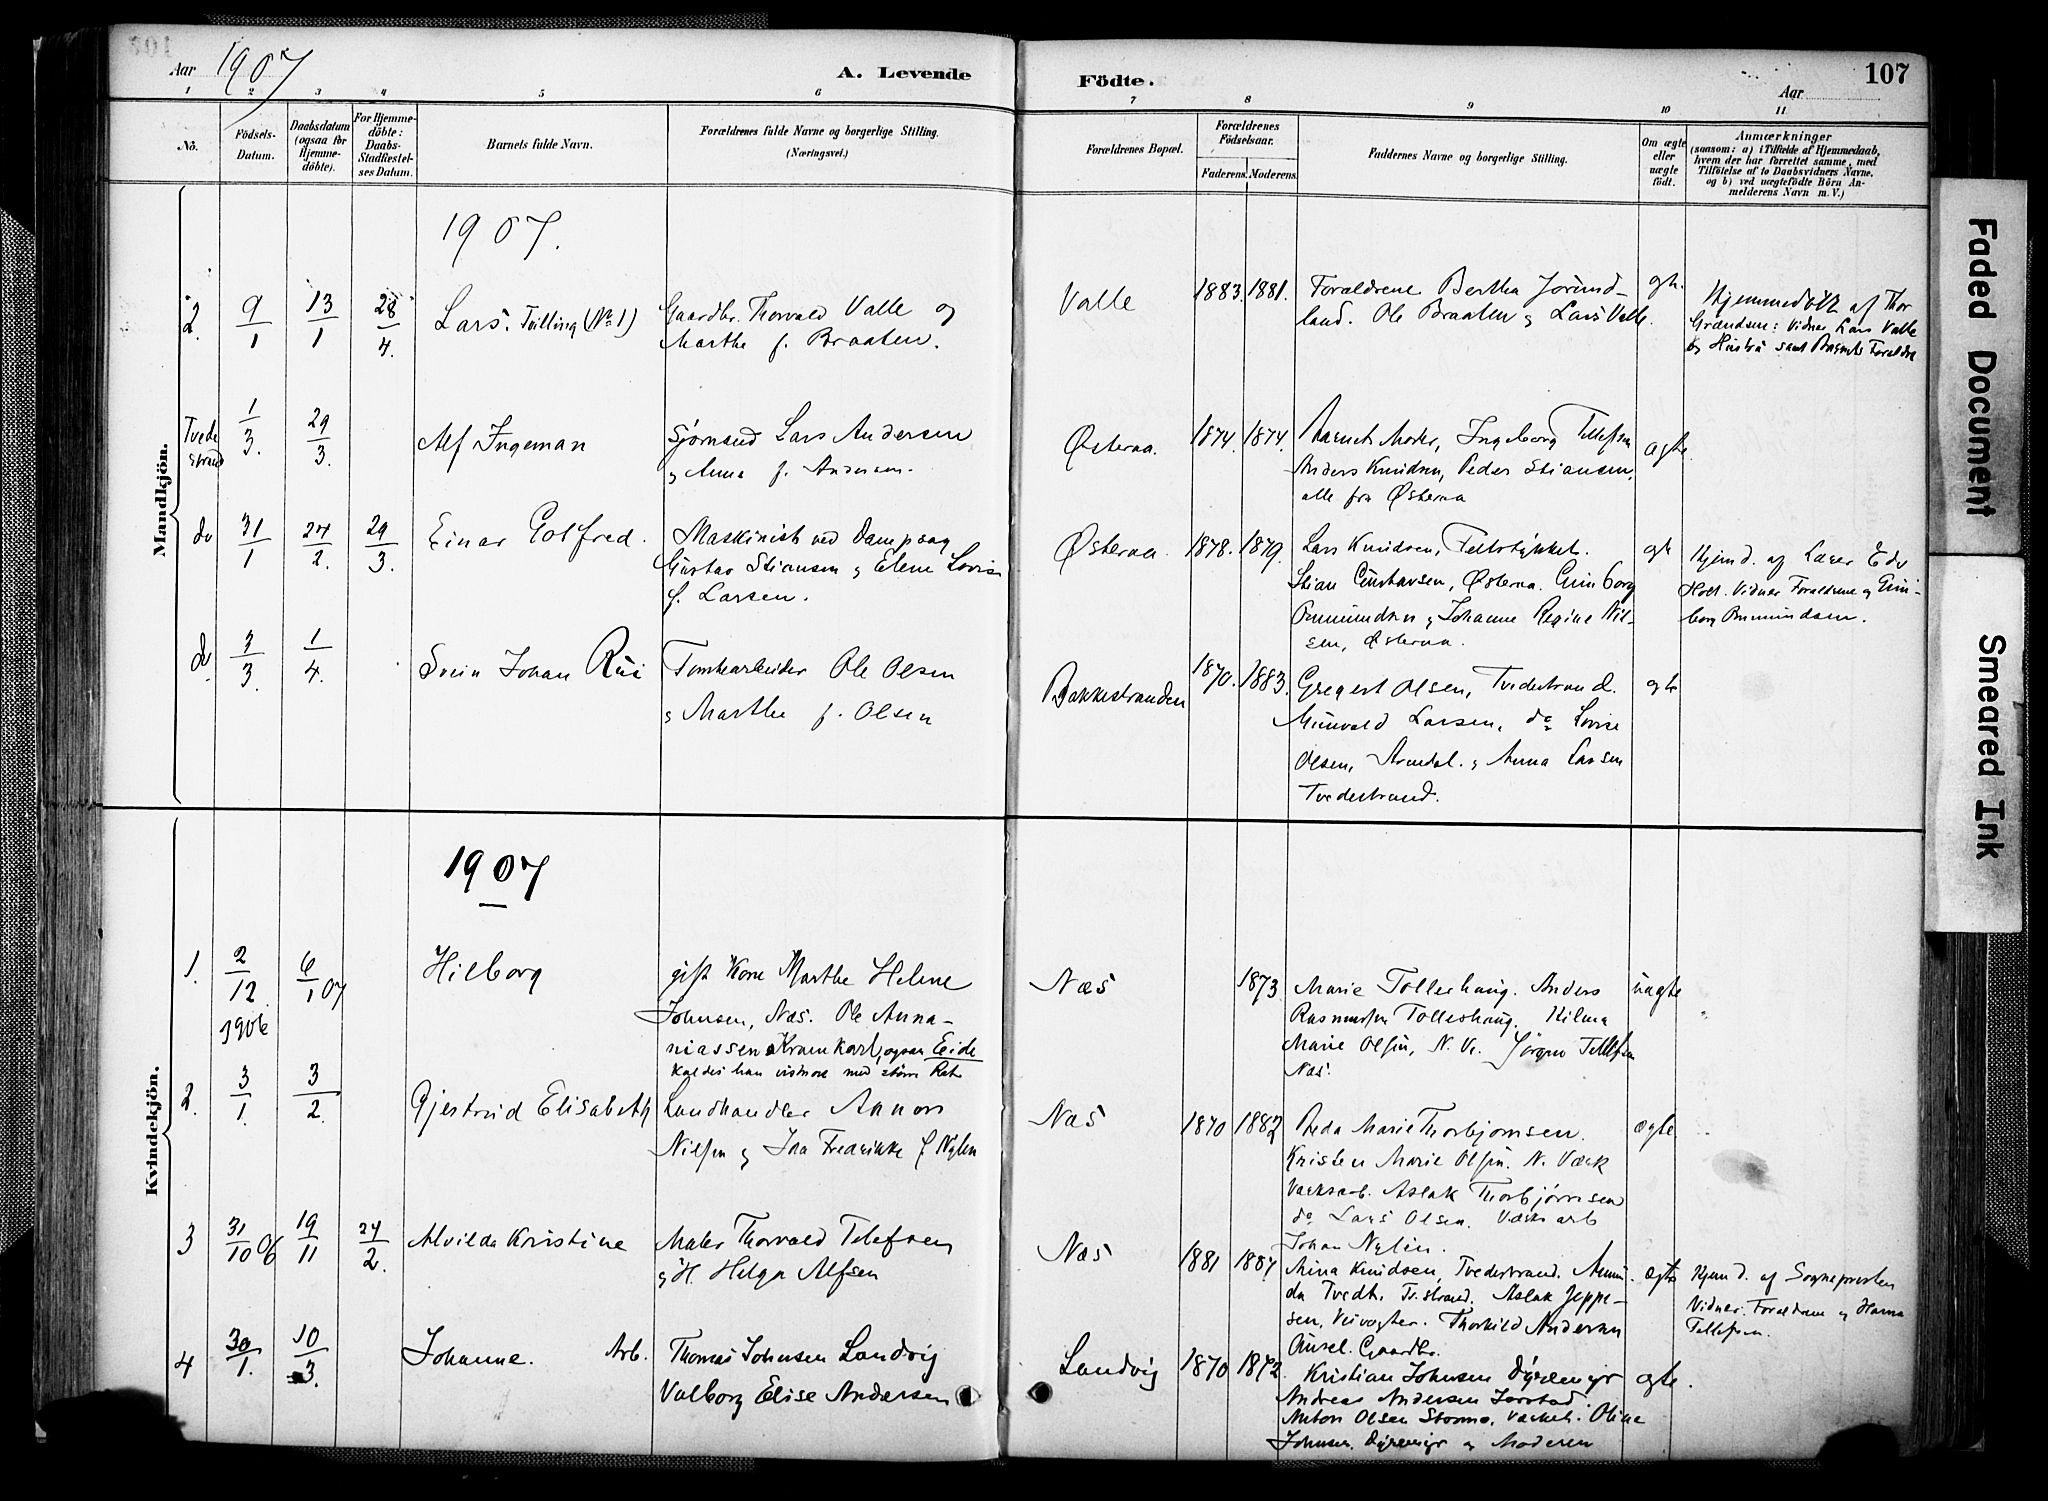 Aar 1907
A. Levende
Födte.
Aar
107
1 2 3 4 5 6 7 8 9 10 11
No.
Födsels-
Datum.
Daabsdatum
(ogsaa for
Hjemme-
döbte).
For Hjemme-
döbte:
Daabs-
Stadfæstel-
ses Datum.
Barnets fulde Navn.
Forældrenes fulde Navne og borgerlige Stilling.
(Næringsvei.)
Forældrenes Bopæl.
Forældrenes
Födselsaar.
Faderens. Moderens.
Faddernes Navne og borgerlige Stilling.
Om ægte
eller
uægte
födt.
Anmærkninger
(saasom: a) i Tilfælde af Hjemmedaab,
hvem der har forrettet samme, med
Tilföielse af to Daabsvidners Navne,
og b) ved uægtefödte Börn An-
melderens Navn m. V.)
Mandkjön.
1907.
2. 9/1 13/1 28/4.
Lars. Tvilling (No 1)
Gaardbr. Thorvald Valle og
Marthe f. Braaten.
Valle
1883. 1881.
Forældrene Bertha Jorund-
land. Ole Braaten og Lars Valle.
Hjemmedöbt af Thor
Grændsen: Vidner Lars Valle
og Hustru samt Barnets Forældre
Tvede
strand
1/3. 29/3.
Alf Ingeman
Sjömand Lars Andersen
og Anna f. Andersen.
Østeraa.
1874. 1874.
Barnets Moder, Ingeborg Tellefsen
Anders Knudsen, Peder Stiansen,
alle fra Østeraa
ægte.
do 31/1 24/2. 29/3.
Einar Gotfred.
Maskinist ved Dampsag
Gustav Stiansen og Elene Lovise
f. Larsen.
Østeraa.
1878. 1879.
Lars Knudsen,
Stian Gustavsen, Østeraa. Gunborg
Osmundsen og Johanne Regine Nil-
sen, Østeraa.
Hjemd. af Læger Edv
Holt. Vidner Forældrene og Gun-
borg Osmundsen.
do 3/3. 1/4.
Svein Johan Rui
Tomtearbeider Ole Olsen
og Marthe f. Olsen
Bakkestranden
1870. 1883.
Gregert Olsen, Tvedestrand.
Gunvald Larsen, do Lovise
Olsen, Arendal. og Anna Larsen
Tvedestrand.
Kvindekjön.
1907
1. 2/12 1906 6/1 07
Hilborg
gift Kone Marthe Helene
Johnsen, Næs. Ole Anna-
niassen Kramkarl, ogsaa Eide
kaldes han vistnok med större Ret
Næs
1873
Marie Tolleshaug. Anders
Rasmussen Tolleshaug. Hilma
Marie Olsen, N. V. Jörgen Tellefsen
Næs.
uægte
2. 3/1. 3/2.
Gjertrud Elisabeth
Landhandler Aanon
Nilsen og Ida Fredrikke f Nylen
Næs
1870 1882
Beda Marie Thorbjornsen.
Kristen Marie Olsen. N. Værk
Værksarb. Aslak Thorbjörnsen
do Lars Olsen. Værksarb
Johan Nylén.
ægte
3 31/10 06 19/11 24/2.
Alvilda Kristine
Maler Thorvald Tellefsen
og H. Helga Alfsen
Næs
1881 1887
Mina Knudsen, Tvedestrand. Amun-
da Tvedt. Tv.strand. Aslak Jeppe-
sen, Veivogter. Thorkild Andersen
Gaardbr.
ægte
Hjemd. af Sognepresten
Vidner. Forældrene og Hanna
Tellefsen.
4 30/1. 10/3.
Johanne.
Arb. Thomas Johnsen Landvig
Valborg Elise Andersen
Landvig
1870 1872.
Kristian Johnsen Dyremyr
Andreas Andersen
Anton Olsen Stormo, Oline
Johnsen, Dyremyr og Moderen
ægte.
Faded Document
Smeared Ink